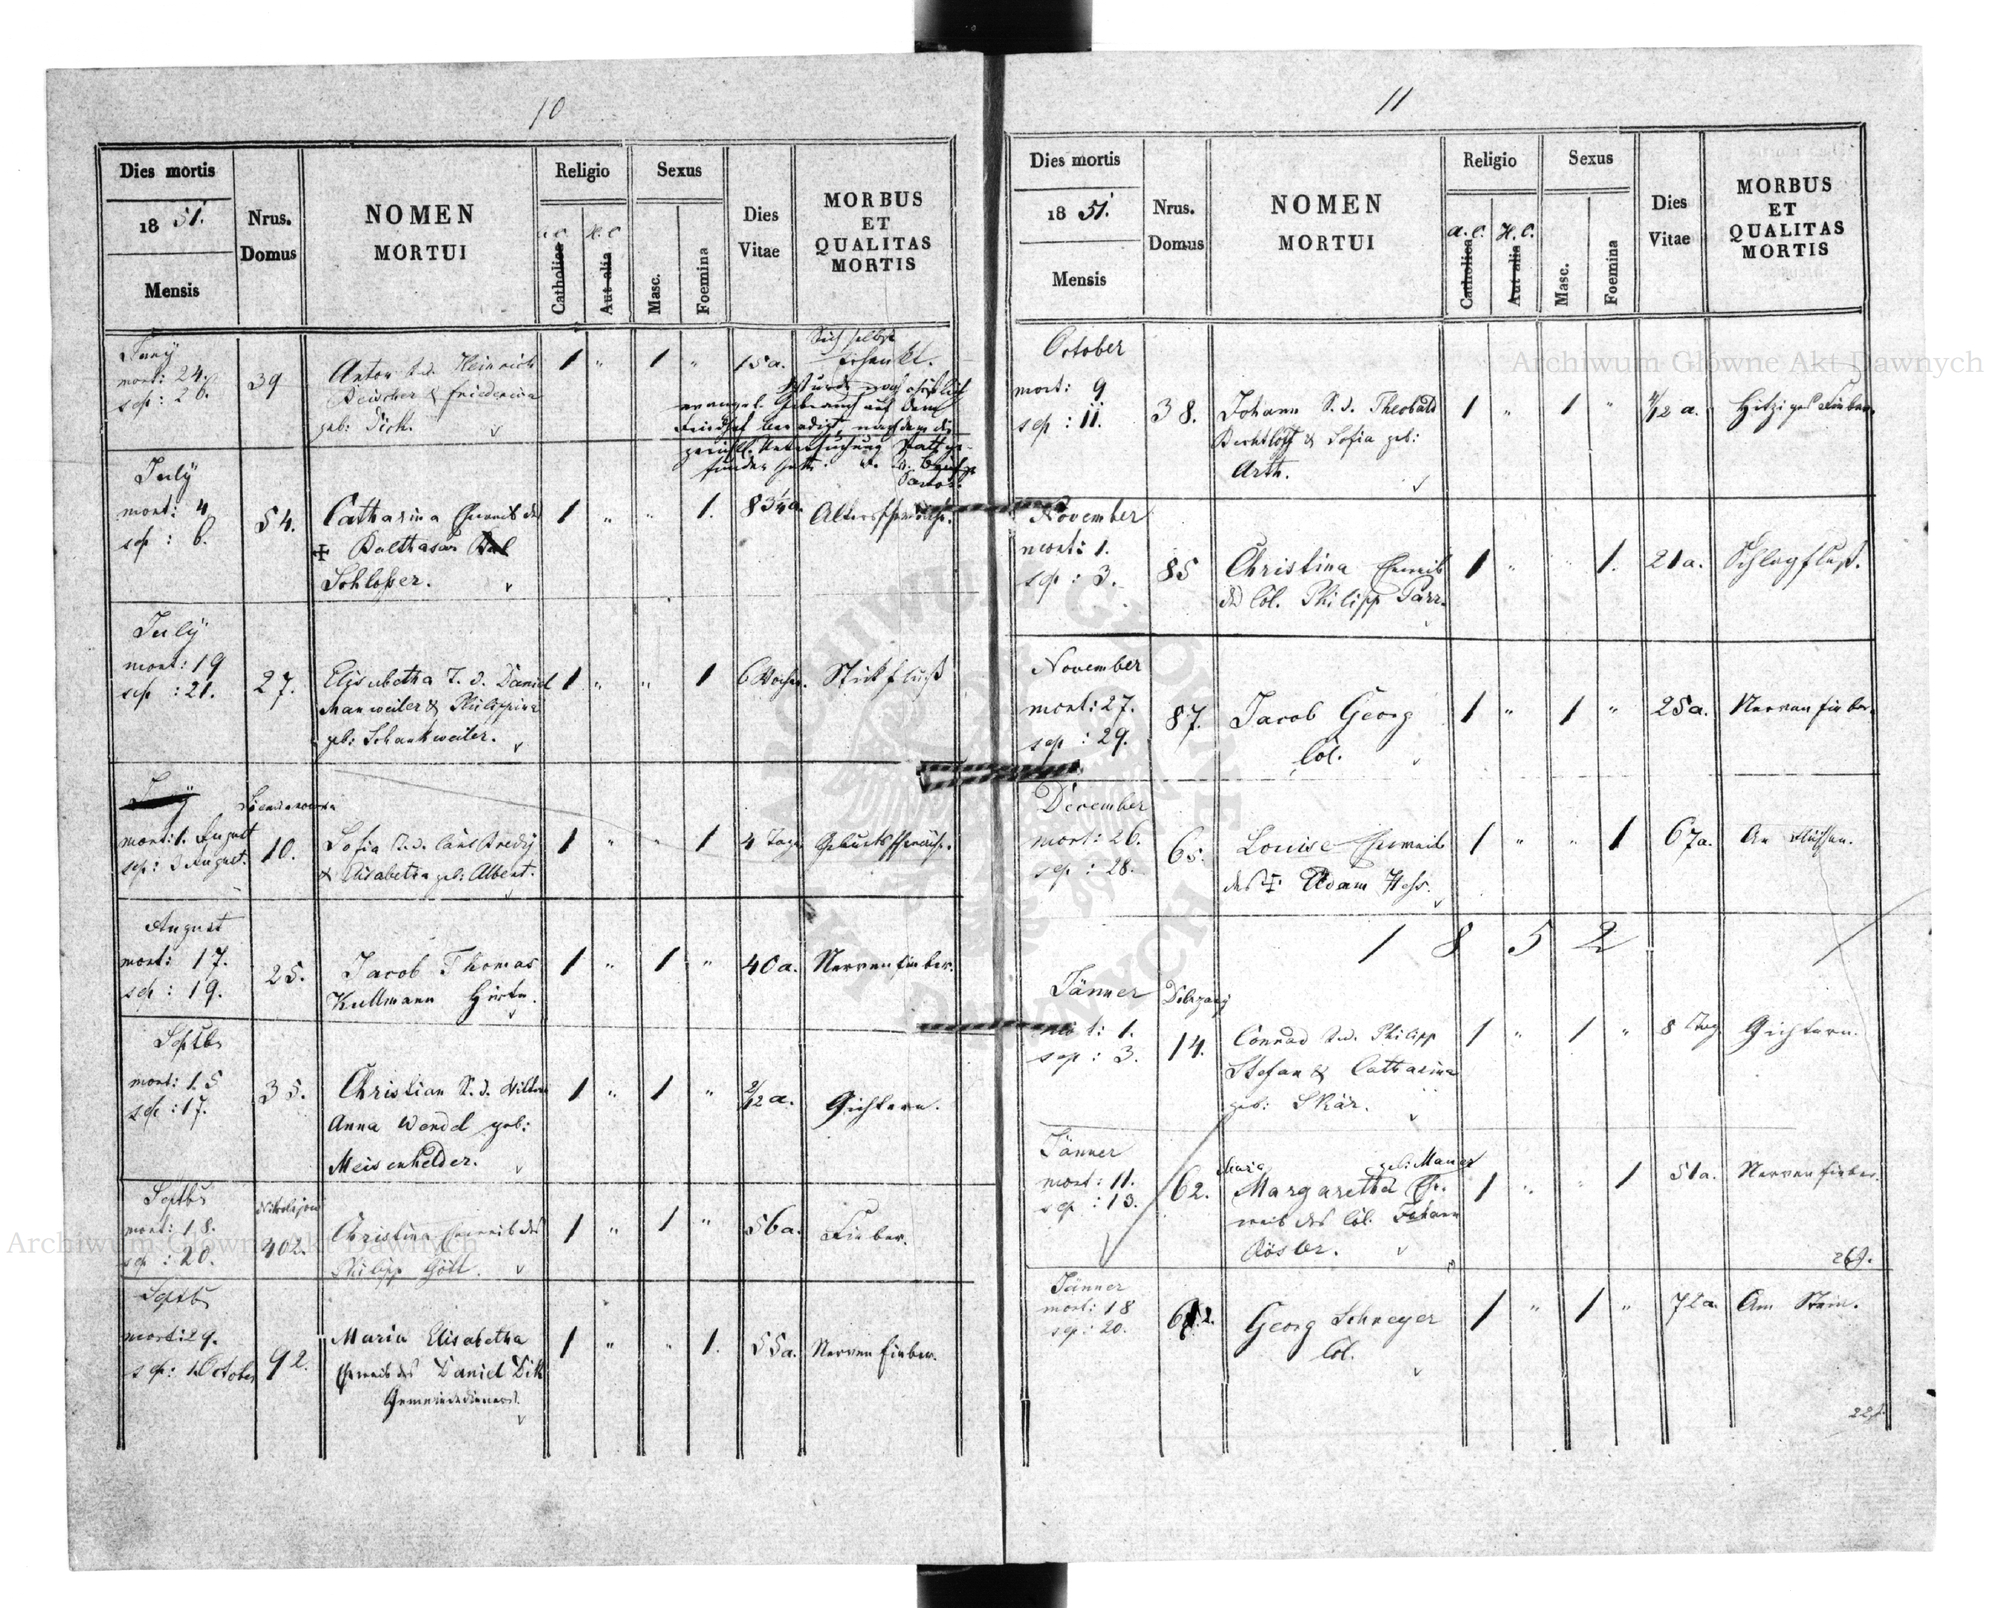 10
Dies mortis
18 51.
Mensis
Nrus.
Domus
NOMEN
MORTUI
Religio
A.C.
H.C.
Catholica
Aut alia
Sexus
Masc.
Foemina
Dies
Vitae
MORBUS
ET
QUALITAS
MORTIS
Juny
mort: 24.
sep: 26.
39
Anton S.d. Heinrich
& Friederica
geb: Dick.
1 " 1 "
15 a.
Sich selbst
erhenkt.
Wurde nach christlich
evangel. Gebrauch auf dem
Friedhof beerdigt, nachdem die
gerichtl. Untersuchung statt ge-
funden hatte.
July
mort: 4.
sep: 6.
54.
Catharina Eheweib des
✝ Balthasar
Schloßer.
1 " " 1.
83¼a.
Altersschwäche.
July
mort: 19
sep: 21.
27.
Elisabetha T. d. Daniel
Manweiler & Philippina
geb: Schankweiler.
1 " " 1
6 Wochen.
Stickfluß
July
mort: 1. August
sep: 3 August.
10.
Sofia T.d.
& Elisabetha geb: Albert.
1 " " 1
4 Tage
Geburtsschwäche.
August
mort: 17.
sep: 19.
25.
Jacob Thomas
Kullmann Hirte.
1 " 1 "
40 a.
Nervenfieber.
Septbr
mort: 15
sep: 17.
35.
Christian S. d.
Anna Wendel geb:
Meisenhelder.
1 " 1 "
2/12 a.
Gichtern.
Septbr
mort: 18.
sep: 20.
402.
Christina Eheweib des
Philipp Göttl.
1 " 1 "
56 a.
Fieber.
Septbr
mort: 29.
sep: 1 October
92.
Maria Elisabetha
Eheweib des Daniel Dik
Gemeindedieners.
1 " " 1.
55 a.
Nervenfieber.
11
Dies mortis
18 51.
Mensis
Nrus.
Domus
NOMEN
MORTUI
Religio
A.C.
H.C.
Catholica
Aut alia
Sexus
Masc.
Foemina
Dies
Vitae
MORBUS
ET
QUALITAS
MORTIS
October
mort: 9
sep: 11.
38.
Johann S. d. Theobald
Bechtloff & Sofia geb:
Arth.
1 " 1 "
4/12 a.
Hitziges Fieber.
November
mort: 1.
sep: 3.
85
Christina Eheweib
des Col. Philipp Parr.
1 " " 1.
21 a.
Schlagfluß.
November
mort: 27.
sep: 29.
87.
Jacob Georg
Col.
1 " 1 "
25 a.
Nervenfieber.
December
mort: 26.
sep: 28.
65.
Louise Eheweib
des ✝ Adam Hess.
1 " " 1
67 a.
1 8 5 2
Jänner
mort: 1.
sep: 3.
14.
Conrad S.d. Philipp
Stefan & Catharina
geb: Skär.
1 " 1 "
8 Tag.
Gichtern.
Jänner
mort: 11.
sep: 13.
62.
Maria geb: Mauer
Margaretha Ehe-
weib des Col. Johann
Rösler.
1 " " 1
51 a.
Nervenfieber.
Jänner
mort: 18
sep: 20.
Georg Schneyer
Col.
1 " 1 "
72 a.
Am Stein.
Archiwum Główne Akt Dawnych
Archiwum Główne Akt Dawnych
ARCHIWUM GŁÓWNE AKT DAWNYCH